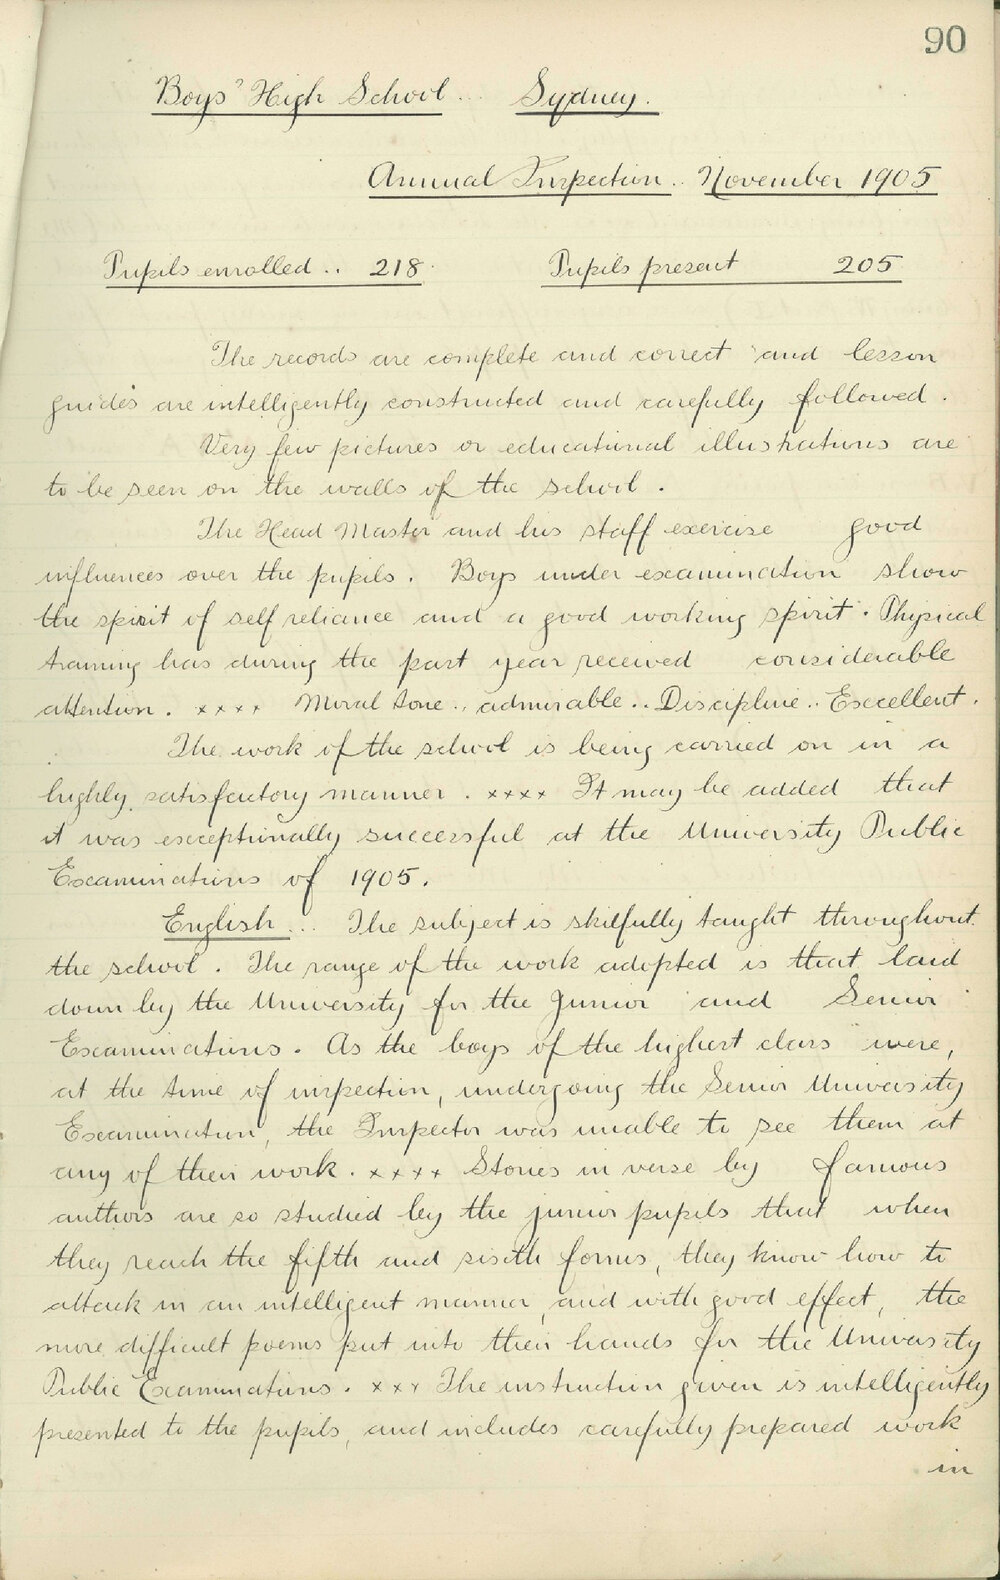 90
Boys' High School .. Sydney.
Annual Inspection .. November 1905
Pupils enrolled .. 218. Pupils present 205
The records are complete and correct and lesson
guides are intelligently constructed and carefully followed.
Very few pictures or educational illustrations are
to be seen on the walls of the school.
The Head Master and his staff exercise good
influences over the pupils. Boys under examination show
the spirit of self reliance and a good working spirit. Physical
training has during the past year received considerable
attention. xxxx Moral tone .. admirable .. Discipline .. Excellent.
The work of the school is being carried on in a
highly satisfactory manner. xxxx It may be added that
it was exceptionally successful at the University Public
Examinations of 1905.
English ... The subject is skilfully taught throughout
the school. The range of the work adopted is that laid
down by the University for the Junior and Senior
Examinations. As the boys of the highest class were,
at the time of inspection, undergoing the Senior University
Examination, the Inspector was unable to see them at
any of their work. xxxx Stories in verse by famous
authors are so studied by the junior pupils that when
they reach the fifth and sixth forms, they know how to
attack in an intelligent manner, and with good effect, the
more difficult poems put into their hands for the University
Public Examinations. xxx The instruction given is intelligently
presented to the pupils, and includes carefully prepared work
in